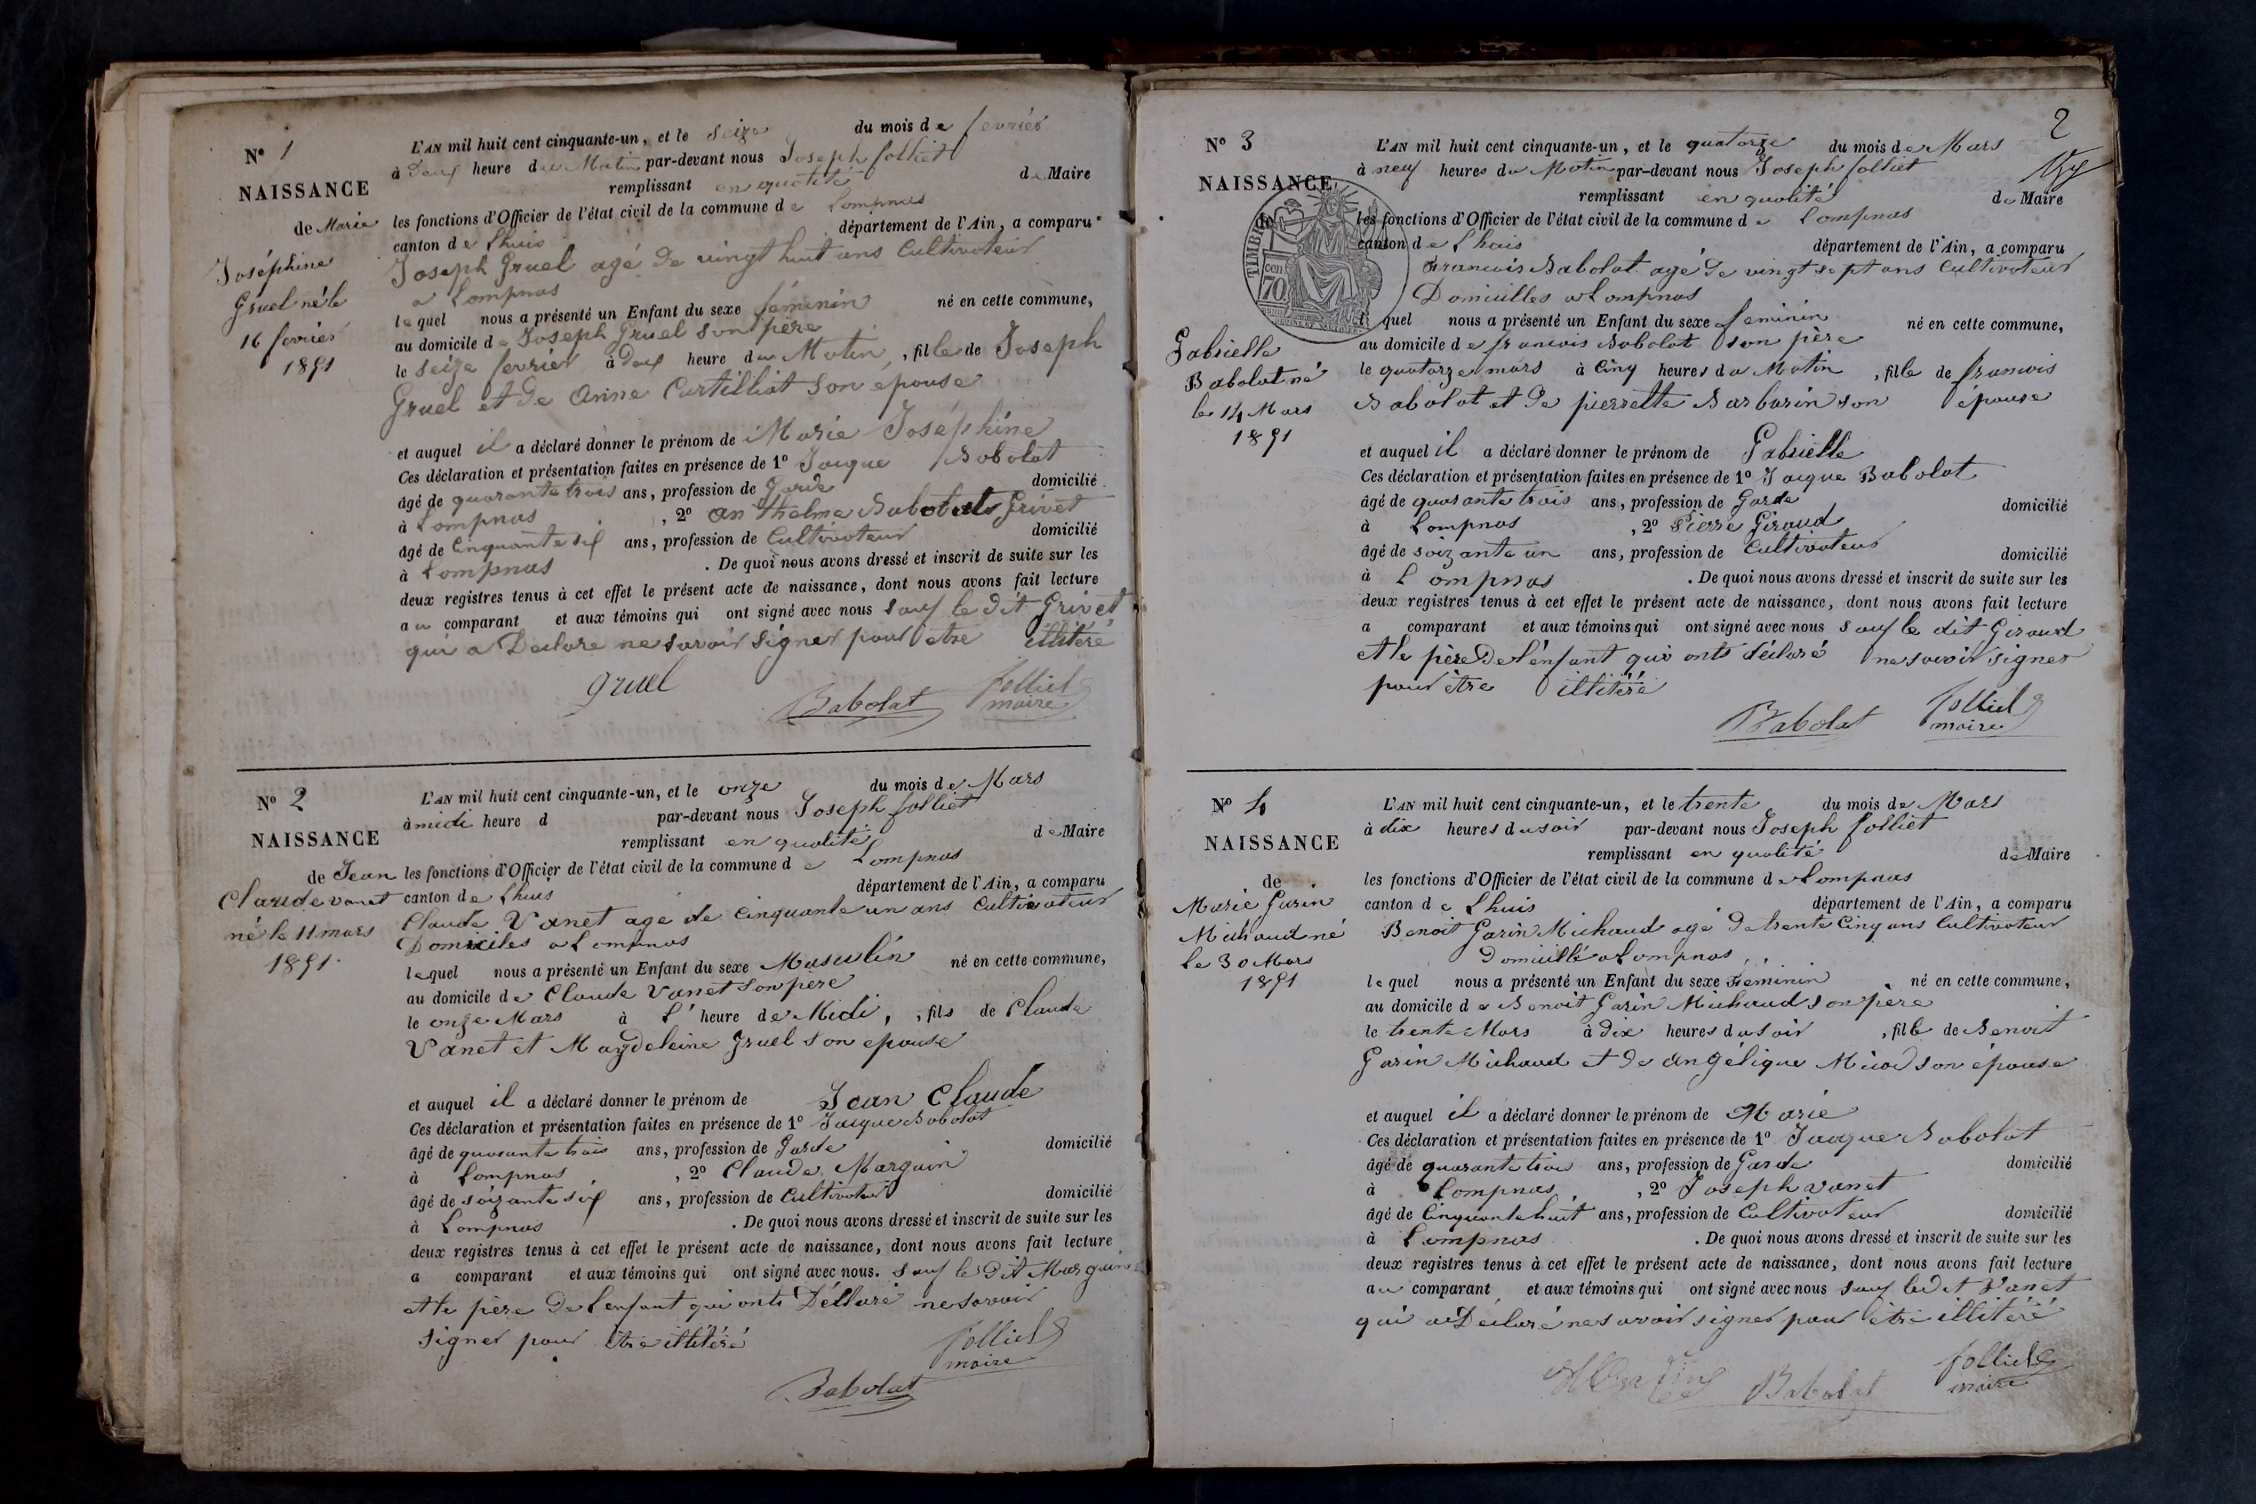 N° 1
NAISSANCE
de Marie
Joséphine
Gruel né le
16 fevrier
1851
L'AN mil huit cent cinquante-un, et le seize du mois de fevrier
à deux heure du Matin par-devant nous Joseph folliet
remplissant en qualité de Maire
les fonctions d'Officier de l'état civil de la commune de Lompnas
canton de Lhuis département de l'Ain, a comparu
Joseph Gruel agé de vingt huit ans Cultivateur
a Lompnas
lequel nous a présenté un Enfant du sexe féminin né en cette commune,
au domicile de Joseph Gruel son père
le seize fevrier à deux heure du Matin, fille de Joseph
Gruel et de Anne Curtilliat son épouse
et auquel il a déclaré donner le prénom de Marie Joséphine
Ces déclaration et présentation faites en présence de 1° Jacque Babolat
âgé de quarante trois ans, profession de Garde domicilié
à Lompnas, 2° anthelme Babolat Grivet
âgé de Cinquante six ans, profession de Cultivateur domicilié
à Lompnas. De quoi nous avons dressé et inscrit de suite sur les
deux registres tenus à cet effet le présent acte de naissance, dont nous avons fait lecture
au comparant et aux témoins qui ont signé avec nous sauf le dit Grivet
qui a Declare ne savoir signer pour etre illitéré
gruel
Babolat
folliet
maire
N° 2
NAISSANCE
de Jean
Claude vanet
né le 11 mars
1851
L'AN mil huit cent cinquante-un, et le onze du mois de Mars
à midi heure d par-devant nous Joseph folliet
remplissant en qualité de Maire
les fonctions d'Officier de l'état civil de la commune de Lompnas
canton de Lhuis département de l'Ain, a comparu
Claude Vanet agé de cinquante un ans Cultivateur
Domiciles a Lompnas
lequel nous a présenté un Enfant du sexe Masculin né en cette commune,
au domicile de Claude Vanet son père
le onze Mars à L' heure de Midi, fils de Claude
Vanet et Magdeleine Gruel son epouse
et auquel il a déclaré donner le prénom de Jean Claude
Ces déclaration et présentation faites en présence de 1° Jacque Babolat
âgé de quarante trois ans, profession de Garde domicilié
à Lompnas, 2° Claude Marguin
âgé de soizante six ans, profession de Cultivateur domicilié
à Lompnas. De quoi nous avons dressé et inscrit de suite sur les
deux registres tenus à cet effet le présent acte de naissance, dont nous avons fait lecture
a comparant et aux témoins qui ont signé avec nous. sauf le Dit Marguin
et le père De l'enfant qui onts Déclaré ne savoir
signer pour être illitéré
folliet
maire
Babolat
2
N° 3
NAISSANCE
de
TIMBRE
cen
70
Gabrielle
Babolat né
le 14 Mars
1851
L'AN mil huit cent cinquante-un, et le quatorze du mois de Mars
à neuf heures du Matin par-devant nous Joseph folliet
remplissant en qualité de Maire
les fonctions d'Officier de l'état civil de la commune de Lompnas
canton de Lhuis département de l'Ain, a comparu
francois Babolat agé de vingt sept ans Cultivateur
Domicilles a Lompnas
quel nous a présenté un Enfant du sexe feminin né en cette commune,
au domicile de francois Babolat son père
le quatorze mars à Cinq heures du Matin, fille de francois
Babolat et de pierrette Barbarin son épouse
et auquel il a déclaré donner le prénom de Gabrielle
Ces déclaration et présentation faites en présence de 1° Jacque Babolat
âgé de quarante trois ans, profession de Garde domicilié
à Lompnas, 2° Pierre Giraud
âgé de soizante un ans, profession de Cultivateur domicilié
à Lompnas. De quoi nous avons dressé et inscrit de suite sur les
deux registres tenus à cet effet le présent acte de naissance, dont nous avons fait lecture
a comparant et aux témoins qui ont signé avec nous sauf le dit Giraud
et le père De l'enfant qui onts déclaré ne savoir signer
pour être illitéré
Babolat
folliet
maire
N° 4
NAISSANCE
de
Marie Garin
Michaud né
le 30 Mars
1851
L'AN mil huit cent cinquante-un, et le trente du mois de Mars
à dix heures du soir par-devant nous Joseph folliet
remplissant en qualité de Maire
les fonctions d'Officier de l'état civil de la commune de Lompnas
canton de Lhuis département de l'Ain, a comparu
Benoit Garin Michaud agé de trente Cinq ans Cultivateur
domicillé a Lompnas
lequel nous a présenté un Enfant du sexe Féminin né en cette commune,
au domicile de Benoit Garin Michaud son père
le trente Mars à dix heures du soir, fille de Benoit
Garin Michaud et de Angélique son épouse
et auquel il a déclaré donner le prénom de Marie
Ces déclaration et présentation faites en présence de 1° Jacque Babolat
âgé de quarante trois ans, profession de Garde domicilié
à Lompnas, 2° Joseph vanet
âgé de Cinquante huit ans, profession de Cultivateur domicilié
à Lompnas. De quoi nous avons dressé et inscrit de suite sur les
deux registres tenus à cet effet le présent acte de naissance, dont nous avons fait lecture
au comparant et aux témoins qui ont signé avec nous sauf le dit Vanet
qui a Déclaré ne savoir signer pour être illitéré
Babolat
folliet
maire